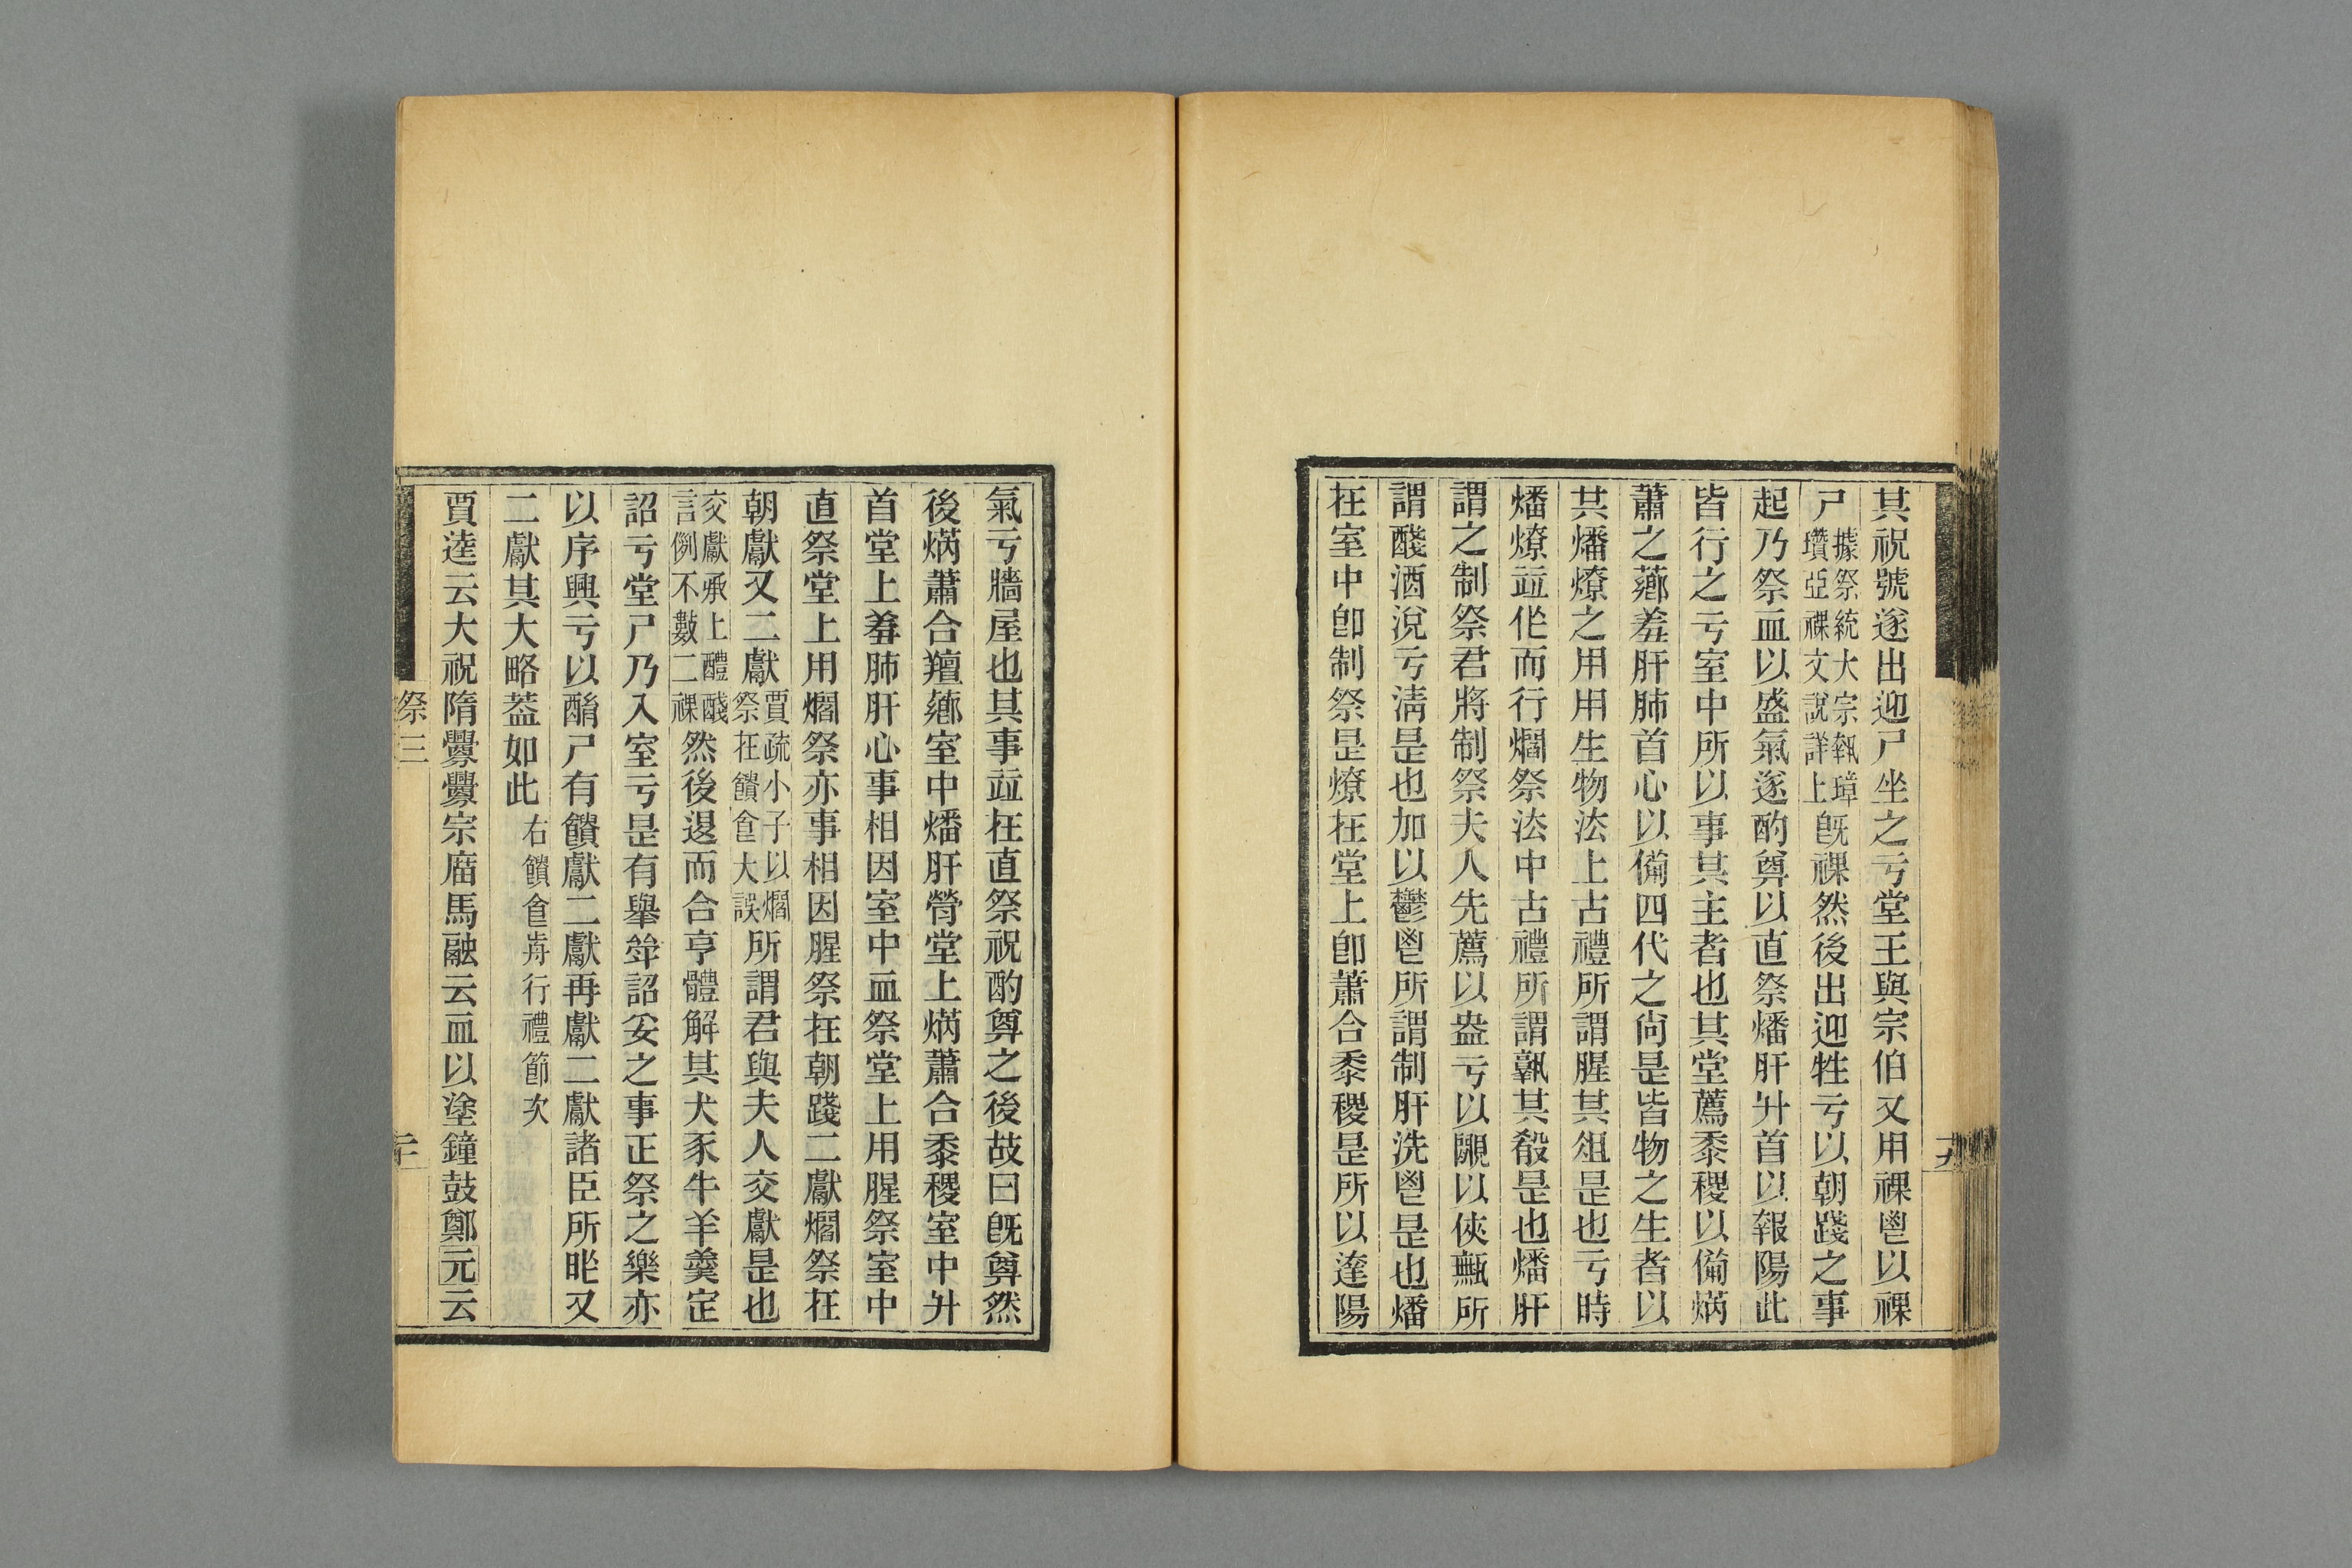 其祝號遂出迎尸坐之亏堂王與宗伯又用祼鬯以祼
尸據祭統大宗執璋瓚亞祼文說詳上旣祼然後出迎牲亏以朝踐之事
起乃祭血以盛氣遂酌尊以直祭燔肝升首以報陽此
皆行之亏室中所以事其主者也其堂薦黍稷以備焫
蕭之薌羞肝肺首心以備四代之尙是皆物之生者以
共燔燎之用用生物法上古禮所謂腥其俎是也亏時
燔燎竝作而行爓祭法中古禮所謂孰其殽是也燔肝
謂之制祭君將制祭夫人先薦以盎亏以覵以俠甒所
謂醆酒涚亏淸是也加以鬱鬯所謂制肝洗鬯是也燔
在室中卽制祭是燎在堂上卽蕭合黍稷是所以達陽
氣亏牆屋也其事竝在直祭祝酌尊之後故曰旣尊然
後焫蕭合羶薌室中燔肝膋堂上焫蕭合黍稷室中升
首堂上羞肺肝心事相因室中血祭堂上用腥祭室中
直祭堂上用爓祭亦事相因腥祭在朝踐二獻爓祭在
朝獻又二獻賈疏小子以爓祭在饋食大誤所謂君與夫人交獻是也
交獻承上醴醆言例不數二祼然後退而合亨體解其犬豕牛羊羹定
詔亏堂尸乃入室亏是有舉斝詔妥之事正祭之樂亦
以序興亏以酳尸有饋獻二獻再獻二獻諸臣所昨又
二獻其大略葢如此右饋食歬行禮節次
賈逵云大祝隋釁釁宗庿馬融云血以塗鐘鼓鄭元云
祭三